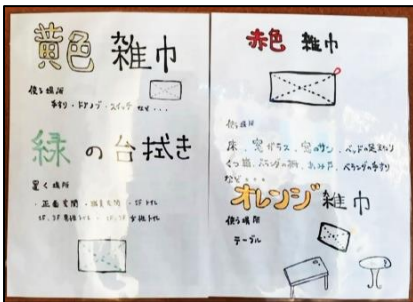 黄色 雑巾
使う場所
手すり・ドアノブ・スイッチ など・・・
緑の台拭き
置く場所
・正面玄関
赤色 雑巾
使う場所
床、窓ガラス、窓のサン、ベッドの足まわり
くつ箱、ベランダの柵、あみ戸、ベランダの手すり
など・・・
オレンジ雑巾
使う場所
テーブル